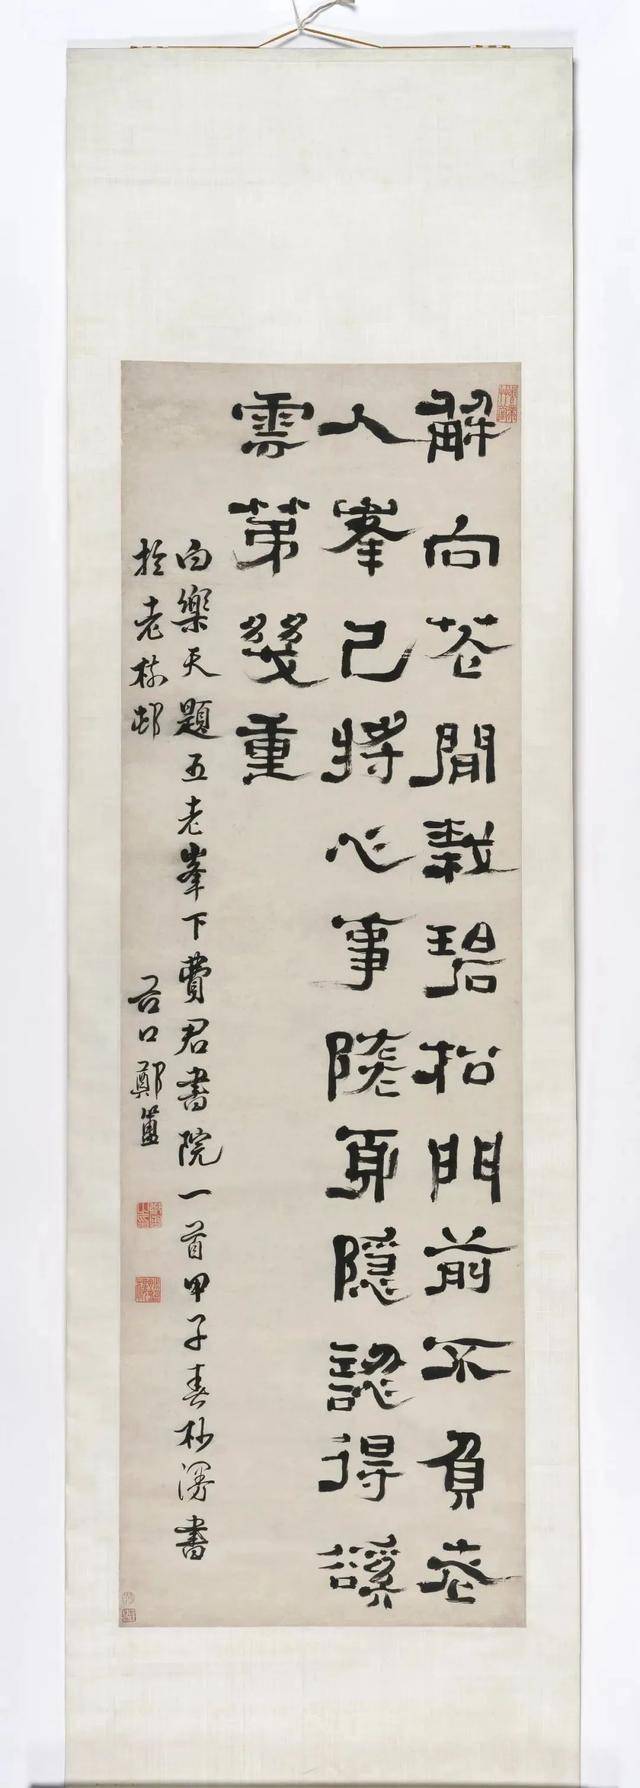 解向花間栽碧松門前不負老
人峯已將心事隨身隱認得谿
雲第幾重
白樂天題五老峯下費君書院一首甲子春杪漫書
於老梅邨
谷口鄭簠